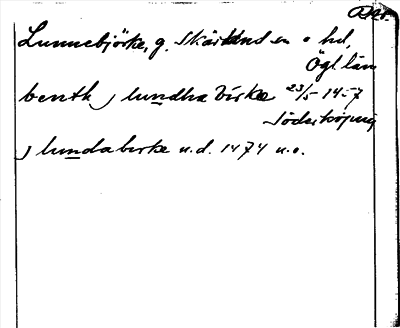 Lunnebjörke, g. Skärkind sn o hd,
Ögl. län
benth j lundha birke 23/5 1457
Söderköping
j lundabirke u.d. 1474 u.o.